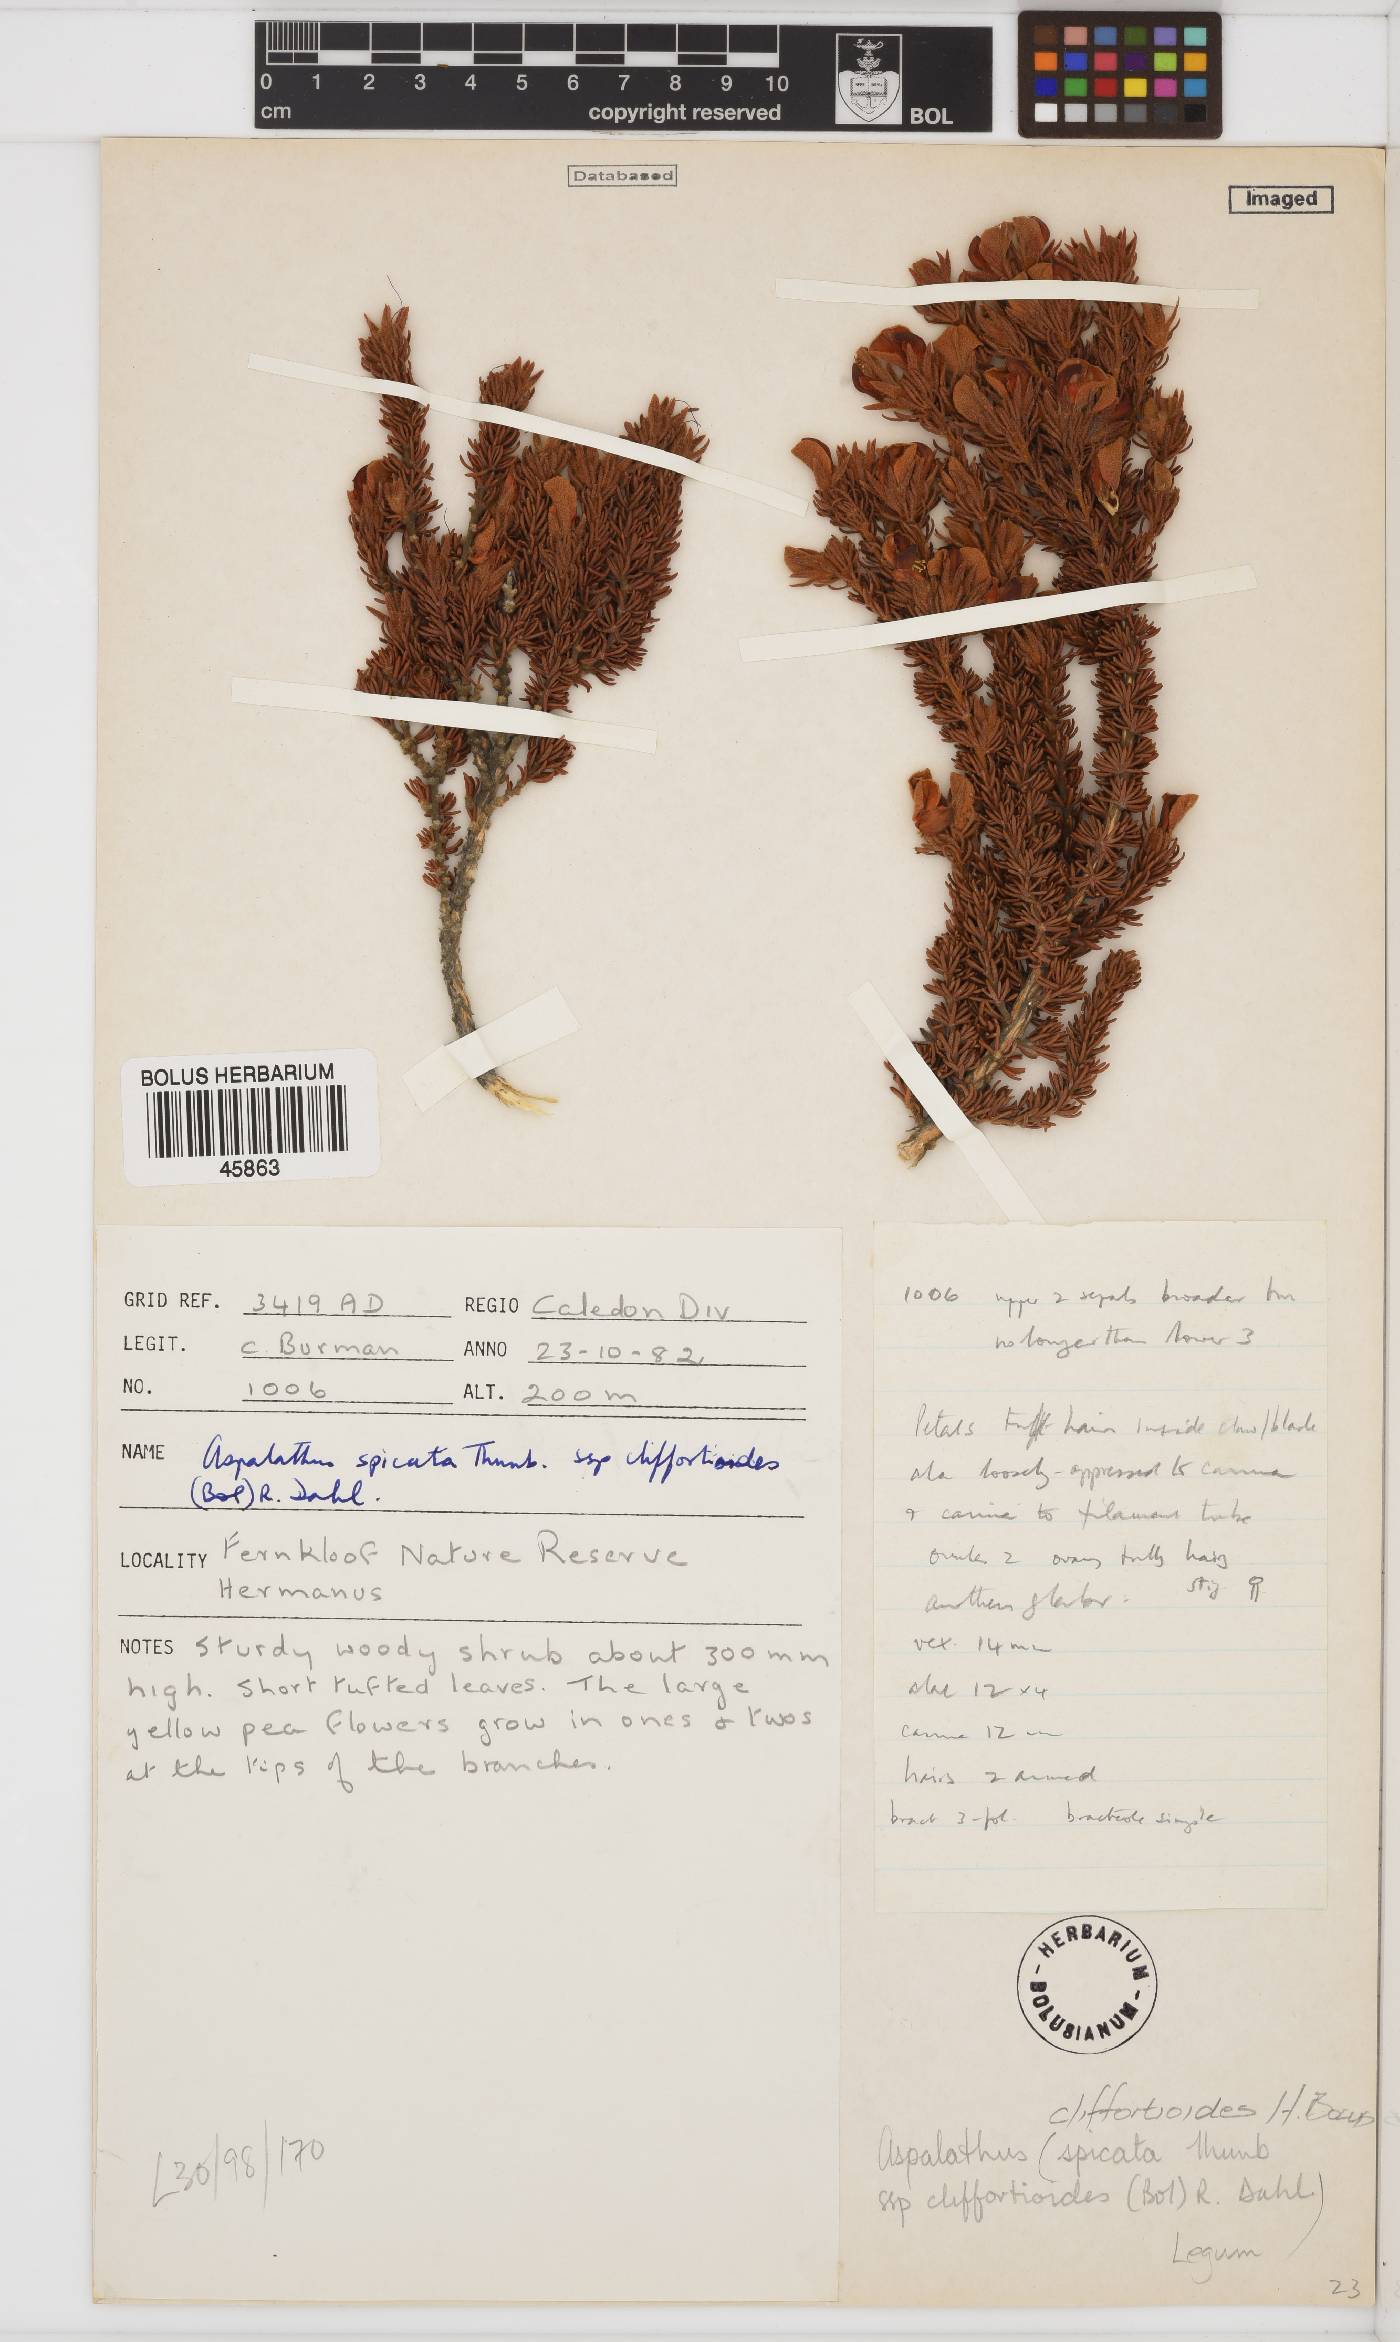 0 1 2 3 4 5 6 7 8 9 10
cm
copyright reserved
BOL
Databased
Imaged
BOLUS HERBARIUM
45863
GRID REF. 3419 AD REGIO Caledon Div
LEGIT. C. Burman ANNO 23-10-82
NO. 1006 ALT. 200 m
NAME Aspalathus spicata Thunb. ssp cliffortioides
(Bol) R. Dahl.
LOCALITY Fernkloof Nature Reserve
Hermanus
NOTES Sturdy woody shrub about 300 mm
high. Short tufted leaves. The large
yellow pea flowers grow in ones & twos
at the tips of the branches.
L30/98/170
1006 upper 2 sepals broader but
no longer than lower 3
Petals tuft hair inside claw/blade
ala loosely-appressed to carina
& carina to filament tube
ovules 2 ovary tufty hairy
anthers glabr. stig
vex. 14 mm
alae 12 x 4
carina 12 m
hairs 2 armed
bract 3-fol. bracteole simple
HERBARIUM
BOLUSIANUM
cliffortioides H. Bolus
Aspalathus (spicata Thunb
ssp cliffortioides (Bol) R. Dahl.)
Legum
23